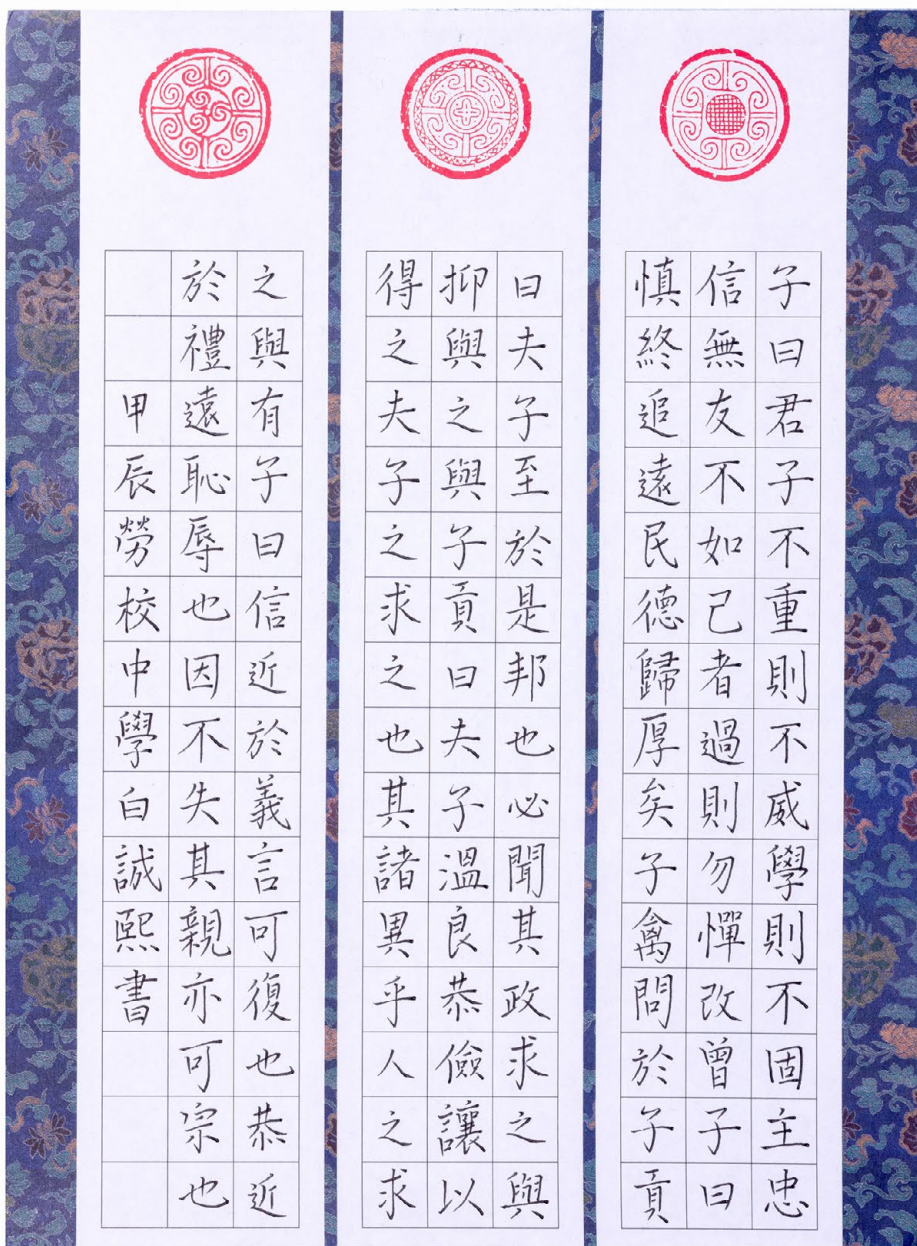 子曰君子不重則不威學則不固主忠
信無友不如己者過則勿憚改曾子曰
慎終追遠民德歸厚矣子禽問於子貢
曰夫子至於是邦也必聞其政求之與
抑與之與子貢曰夫子溫良恭儉讓以
得之夫子之求之也其諸異乎人之求
之與有子曰信近於義言可復也恭近
於禮遠恥辱也因不失其親亦可宗也
甲辰勞校中學白誠熙書